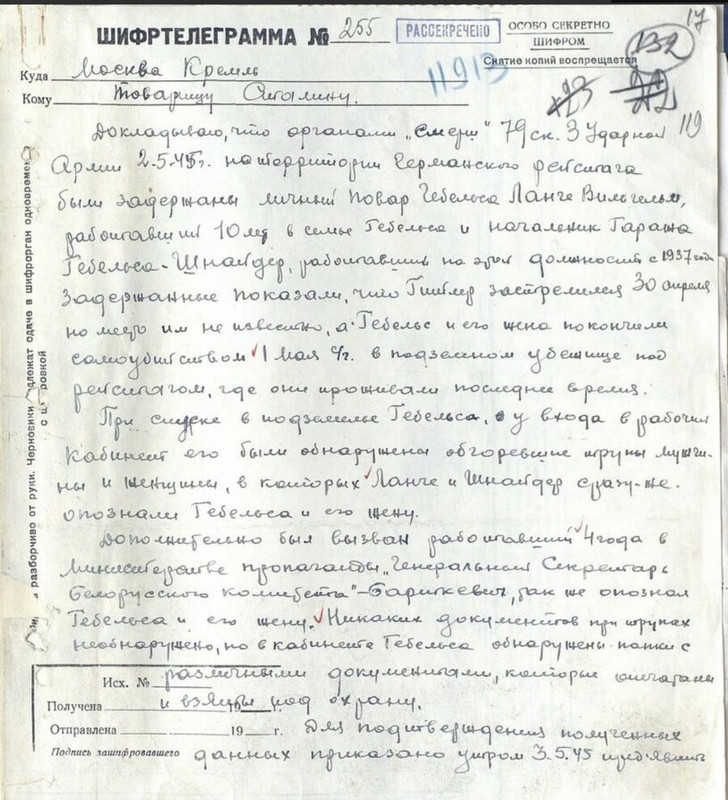 17
ШИФРТЕЛЕГРАММА № 255
РАССЕКРЕЧЕНО
ОСОБО СЕКРЕТНО
ШИФРОМ
Снятие копий воспрещается
132
11913
Куда Москва Кремль
Кому Товарищу Сталину.
119
Докладываю, что органами „Смерш" 79 ск. 3 Ударной
Армии 2.5.45г. на территории Германского рейстага
были задержаны личный повар Гебельса Ланге Вильгельм,
работавший 10 лет в семье Гебельса и начальник Гаража
Гебельса-Шнайдер, работавший на этой должности с 1937 года
Задержанные показали, что Гитлер застрелился 30 апреля
но место им не известно, а Гебельс и его жена покончили
самоубийством 1 мая с/г. в подземном убежище под
рейстагом, где они проживали последнее время.
При спуске в подземелье Гебельса, у входа в рабочий
кабинет его были обнаружены обгоревшие трупы мужчи-
ны и женщины, в которых Ланге и Шнайдер сразу-же
опознали Гебельса и его жену.
Дополнительно был вызван работавший 4 года в
Министерстве пропаганды „Генеральный Секретарь
Белорусского комитета"- так же опознал
Гебельса и его жену. Никаких документов при трупах
необнаружено, но в кабинете Гебельса обнаружены папки с
различными документами, которые опечатаны
и взяты под охрану.
Для подтверждения полученных
данных приказано утром 3.5.45 предъявить
Исх. №
Получена 19 г.
Отправлена 19 г.
Подпись зашифровавшего
разборчиво от руки. Черновики сдаче в шифрорган